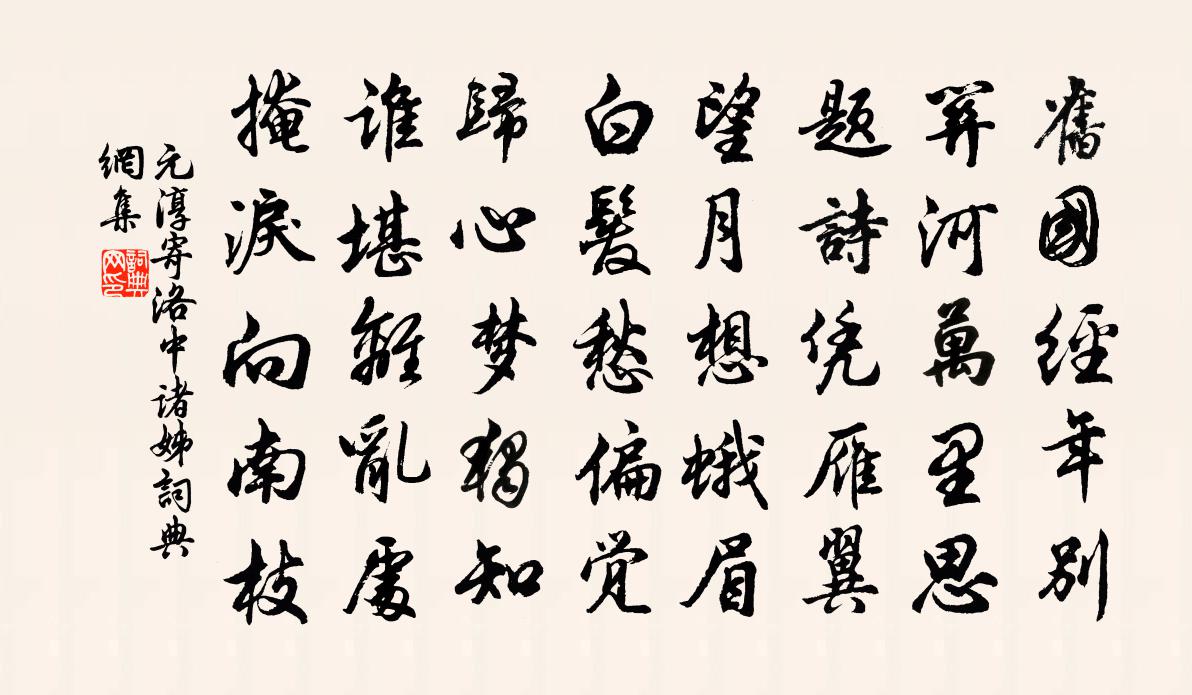 舊國經年别
關河萬里思
题詩凭雁翼
望月想蛾眉
白髮愁偏觉
歸心梦獨知
誰堪離亂處
掩淚向南枝
元淳寄洛中諸姊詞典
網集
詞典
网印